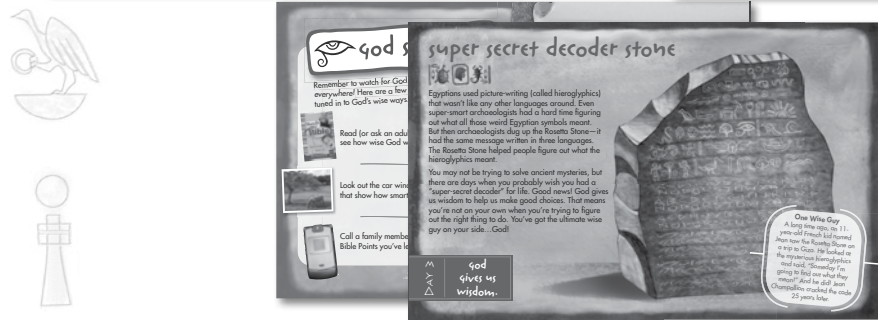 god s
Remember to watch for God
everywhere! Here are a few
tuned in to God's wise ways
Read (or ask an adu
see how wise God w
Look out the car win
that show how smart
Call a family membe
Bible Points you've le
super secret decoder stone
Egyptians used picture-writing (called hieroglyphics)
that wasn't like any other languages around. Even
super-smart archaeologists had a hard time figuring
out what all those weird Egyptian symbols meant.
But then archaeologists dug up the Rosetta Stone—it
had the same message written in three languages.
The Rosetta Stone helped people figure out what the
hieroglyphics meant.
You may not be trying to solve ancient mysteries, but
there are days when you probably wish you had a
"super-secret decoder" for life. Good news! God gives
us wisdom to help us make good choices. That means
you're not on your own when you're trying to figure
out the right thing to do. You've got the ultimate wise
guy on your side...God!
DAY
god
gives us
wisdom.
One Wise Guy
A long time ago, an 11-
year-old French kid named
Jean saw the Rosetta Stone on
a trip to Giza. He looked at
the mysterious hieroglyphics
and said, "Someday I'm
going to find out what they
mean!" And he did! Jean
Champollion cracked the code
25 years later.